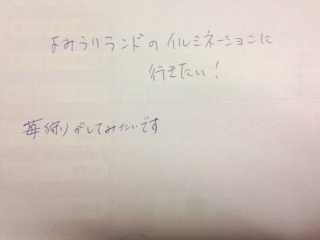 よみうりランドのイルミネーションに
行きたい！
苺狩りがしてみたいです